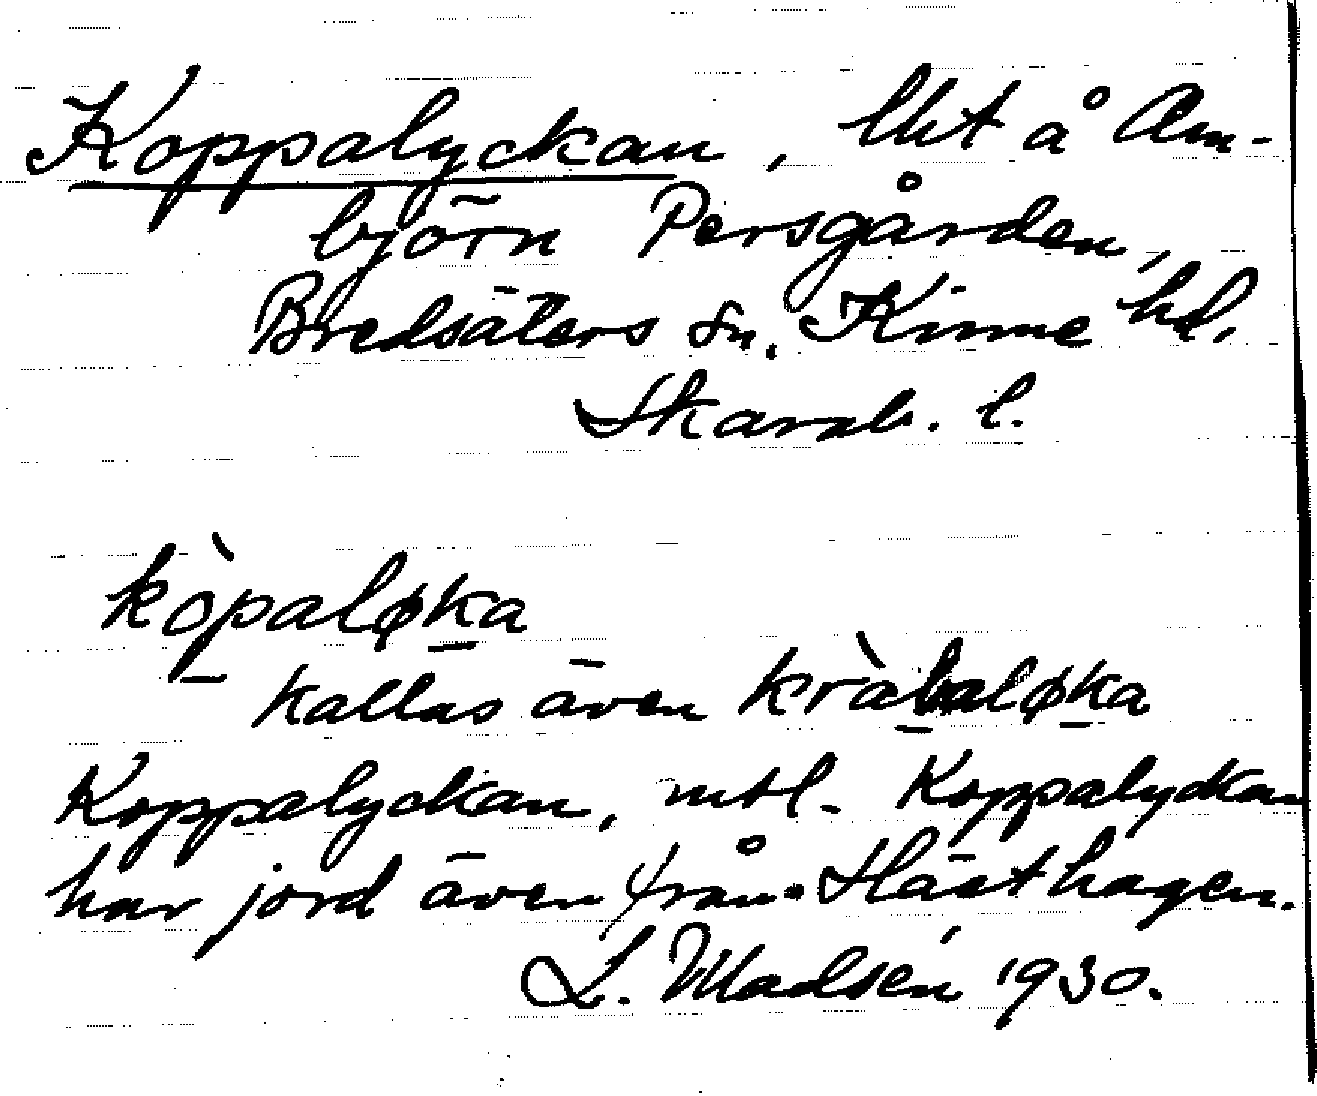 Koppalyckan, lht å Am-
björn Persgården,
Bredsäters sn. Kinne hd.
Skarab. l.
kòpaløka
kallas även kràbaløka
Koppalyckan, mtl. Koppalyckan
har jord även från Hästhagen.
L. Madsén 1930.